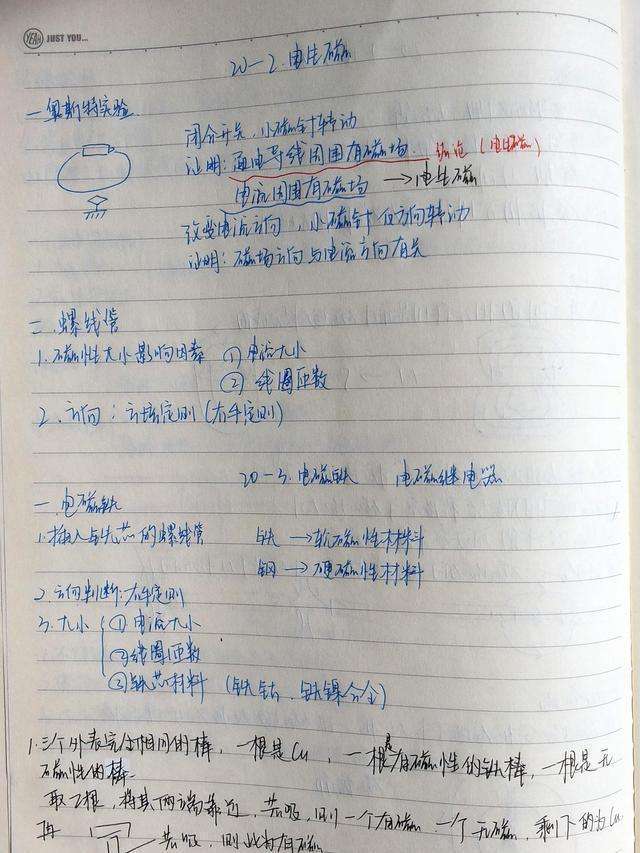 YEAH JUST YOU...
20-2.电生磁
一.奥斯特实验
闭合开关,小磁针转动
证明:通电导线周围有磁场. 结论(电生磁)
电流周围有磁场 → 电生磁
改变电流方向,小磁针反方向转动
证明:磁场方向与电流方向有关
二.螺线管
1.磁性大小影响因素 ①电流大小
②线圈匝数
2.方向:安培定则(右手定则)
20-3.电磁铁 电磁继电器
一.电磁铁
1.插入铁芯的螺线管 铁 → 软磁性材料
钢 → 硬磁性材料
2.方向判断:右手定则
3.大小 ①电流大小
②线圈匝数
③铁芯材料 (铁钴.铁镍合金)
1.三个外表完全相同的棒,一根是Cu,一根是有磁性的铁棒,一根是无
磁性的棒
取2根,将其两端靠近,若吸,则一个有磁.一个无磁,剩下的为Cu.
再 若吸,则此棒有磁